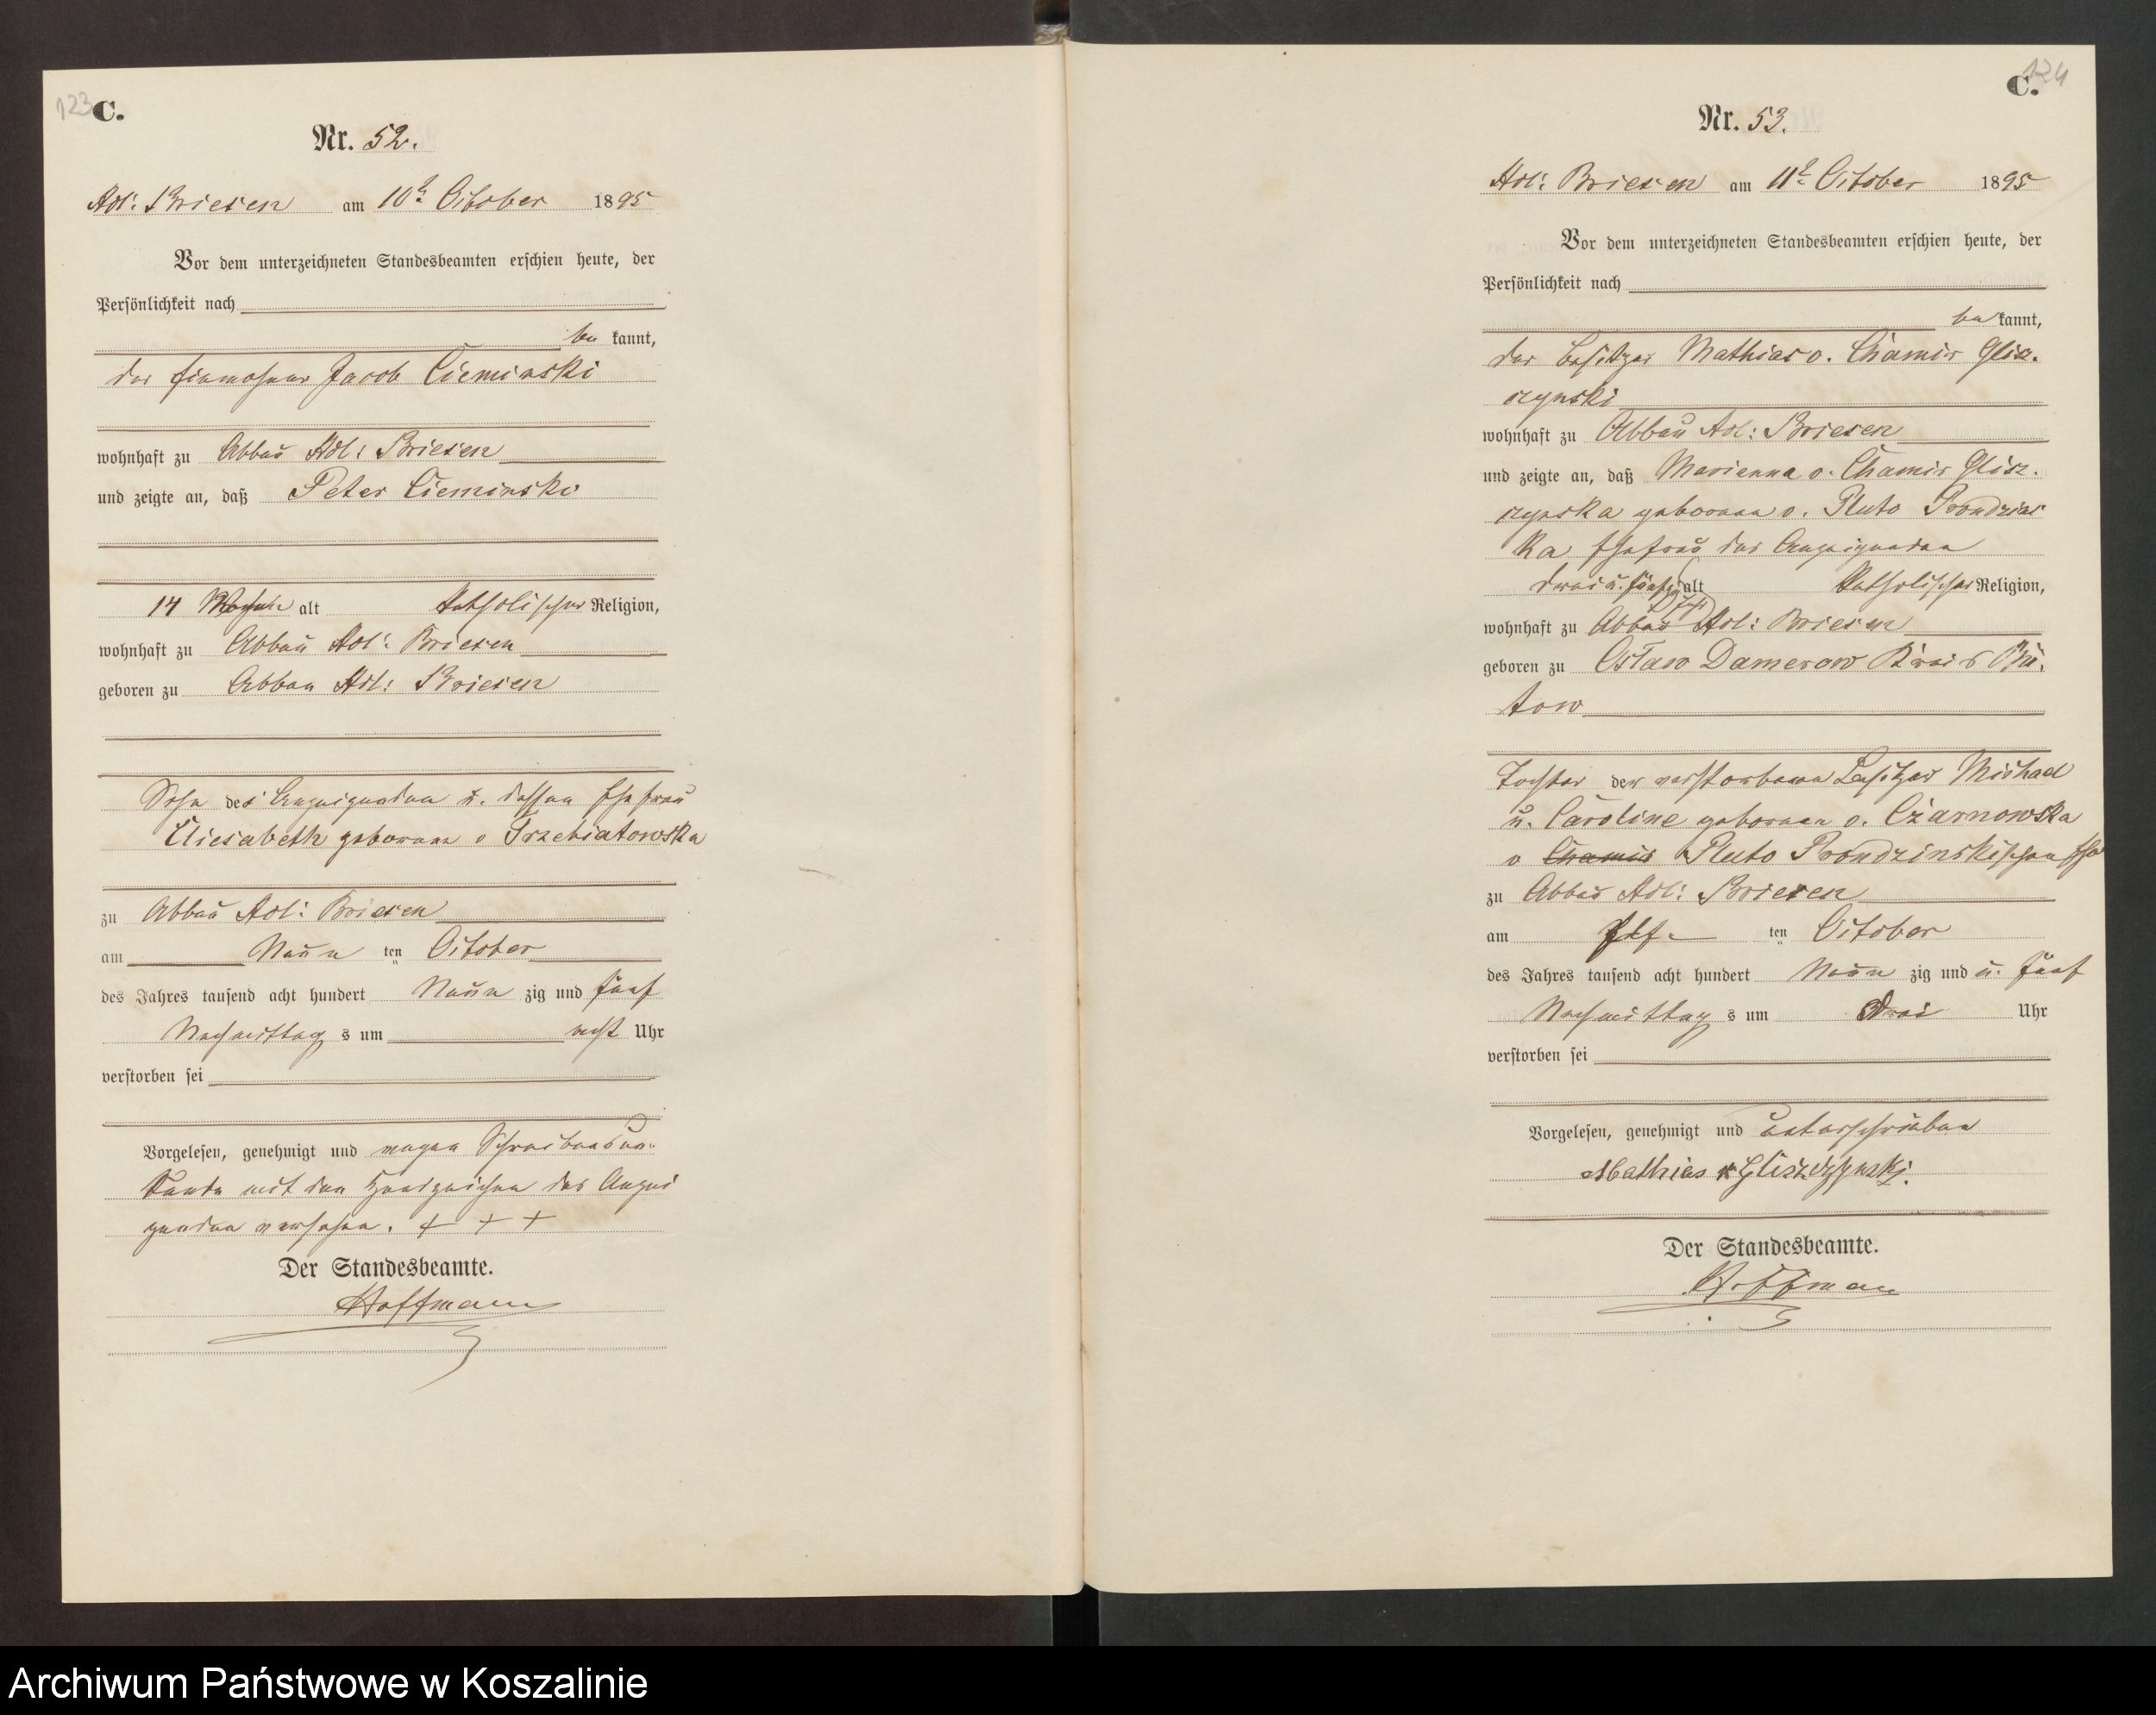 123
C.
Nr. 52.
Adl: Briesen am 10t October 1895
Vor dem unterzeichneten Standesbeamten erschien heute, der
Persönlichkeit nach
be kannt,
der Einwohner Jacob Cieminski
wohnhaft zu Abbau Adl: Briesen
und zeigte an, daß Peter Cieminski
14 Wochen alt katholischer Religion,
wohnhaft zu Abbau Adl: Briesen
geboren zu Abbau Adl: Briesen
Sohn des Anzeigenden u. dessen Ehefrau
Eliesabeth geborene v Trzebiatowska
zu Abbau Adl: Briesen
am Neun ten October
des Jahres tausend acht hundert Neun zig und fünf
Nachmittag s um acht Uhr
verstorben sei
Vorgelesen, genehmigt und wegen Schreibensun-
kunde mit den Handzeichen des Anzei
genden versehen. + + +
Der Standesbeamte.
Hoffmann
124
C.
Nr. 53.
Adl: Briesen am 11t October 1895
Vor dem unterzeichneten Standesbeamten erschien heute, der
Persönlichkeit nach
be kannt,
der Besitzer Mathias v. Chamir Glisz-
czynski
wohnhaft zu Abbau Adl: Briesen
und zeigte an, daß Marianna v. Chamir Glisz-
czynska geborene v. Pluto Prondzins
ka Ehefrau des Anzeigenden
drei u. fünfzig alt katholischer Religion,
wohnhaft zu Abbau Adl: Briesen
geboren zu Oslaw Damerow Kreis Bü-
tow
Tochter der verstorbenen Besitzer Michael
u. Caroline geborene v. Czarnowska
v Chamir Pluto Prondzinskischen Ehe
zu Abbau Adl: Briesen
am Elf- ten October
des Jahres tausend acht hundert Neun zig und u. fünf
Nachmittag s um Drei Uhr
verstorben sei
Vorgelesen, genehmigt und unterschrieben
Mathias v Gliszczynski.
Der Standesbeamte.
Hoffmann
Archiwum Państwowe w Koszalinie